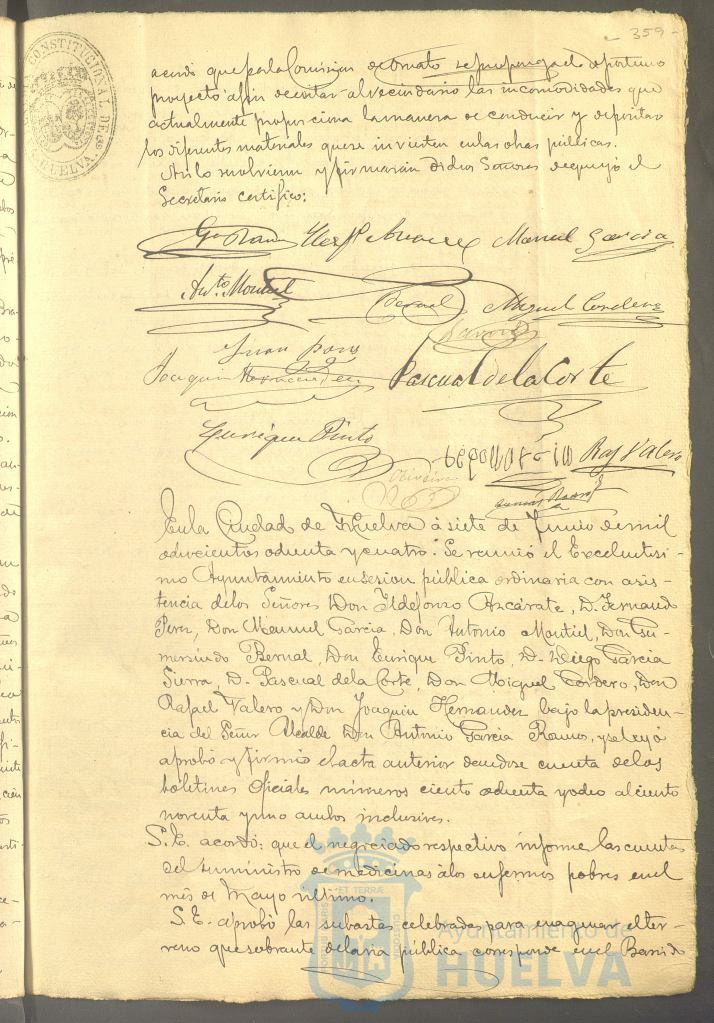 359
acordó que por la Comision de Ornato se proponga el oportuno
proyecto á fin de evitar al vecindario las incomodidades que
actualmente proporciona la manera de conducir y depositar
los diferentes materiales que se invierten en las obras públicas.
Así lo resolvieron y firmarán dichos Señores de que yo el
Secretario certifico:
Ga Ramos Manuel Garcia
Anto Montiel Bernal Miguel Cordero
Juan
Joaquin Hernandez Pascual de la Corte
Enrique Pinto Raf Valero
En la Ciudad de Huelva á siete de Junio de mil
ochocientos ochenta y cuatro: Se reunió el Excelentisi-
mo Ayuntamiento en sesion pública ordinaria con asis-
tencia de los Señores Don Ildefonzo Azcárate, D. Fernando
Perez, Don Manuel Garcia, Don Antonio Montiel, Don Gu-
mersindo Bernal, Don Enrique Pinto, D. Diego Garcia
Sierra, D. Pascual de la Corte, Don Miguel Cordero, Don
Rafael Valero y Don Joaquin Hernandez bajo la presiden-
cia del Señor Alcalde Don Antonio Garcia Ramos, y se leyó
aprobó y firmó el acta anterior dandose cuenta de los
boletines oficiales números ciento ochenta y ocho al ciento
noventa y uno ambos inclusives.
S.E. acordó: que el negociado respectivo informe las cuentas
del suministro de medicinas á los enfermos pobres en el
més de Mayo último.
S.E. aprobó las subastas celebradas para enagenar el ter-
reno que sobrante de la via pública corresponde en el Barrio
CONSTITUCIONAL DE HUELVA
Ayuntamiento de
HUELVA